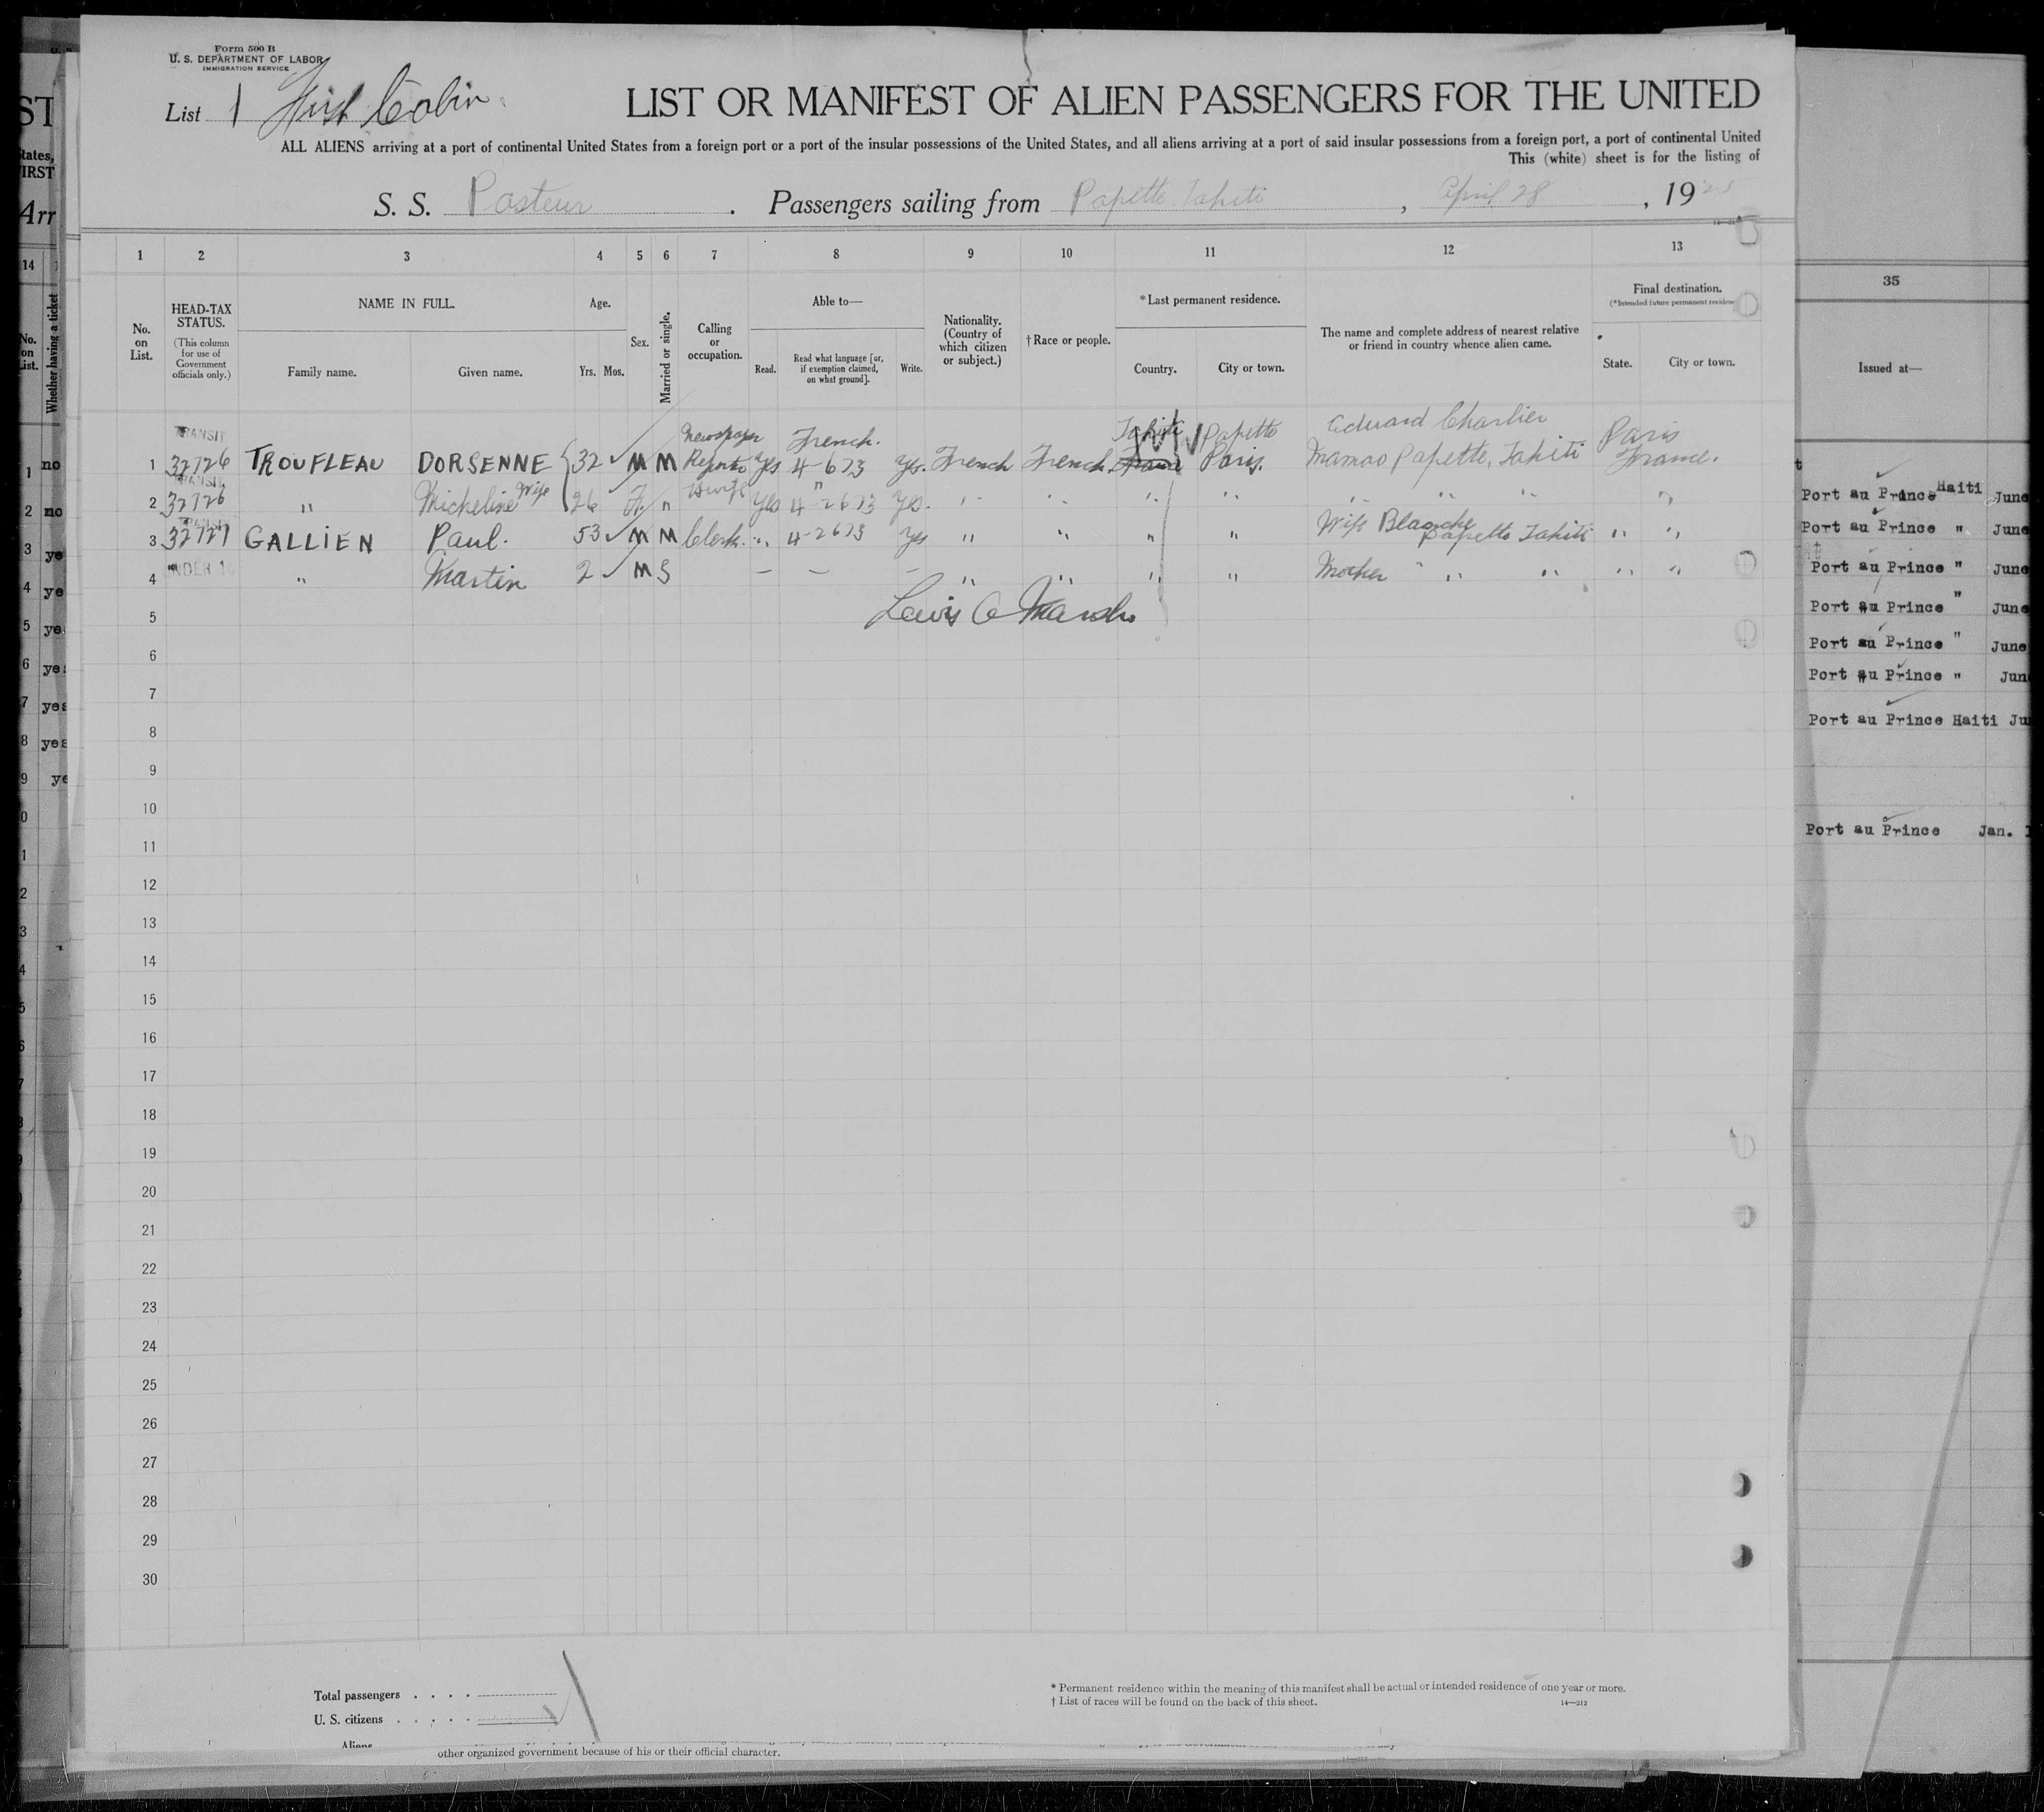 Form 500 B
U. S. DEPARTMENT OF LABOR
IMMIGRATION SERVICE
List 1 First Cabin
LIST OR MANIFEST OF ALIEN PASSENGERS FOR THE UNITED
ALL ALIENS arriving at a port of continental United States from a foreign port or a port of the insular possessions of the United States, and all aliens arriving at a port of said insular possessions from a foreign port, a port of continental United
This (white) sheet is for the listing of
S. S. Pasteur . Passengers sailing from Papette Tahiti , April 28 , 1925
1 2 3 4 5 6 7 8 9 10 11 12 13
No. on List.
HEAD-TAX STATUS.
(This column for use of Government officials only.)
NAME IN FULL.
Family name. Given name.
Age.
Yrs. Mos.
Sex.
Married or single.
Calling or occupation.
Able to—
Read. Read what language [or, if exemption claimed, on what ground]. Write.
Nationality. (Country of which citizen or subject.)
† Race or people.
* Last permanent residence.
Country. City or town.
The name and complete address of nearest relative or friend in country whence alien came.
Final destination.
(* Intended future permanent residence
State. City or town.
TRANSIT Newspaper French. Tahiti Papette Eduard Charlier Paris
1 32726 TROUFLEAU DORSENNE 32 M M Reporter Yes 4-673 Yes. French French France Paris. Mamao Papette, Tahiti France.
TRANSIT
2 32726 " Micheline Wife 26 F. " Hwife Yes 4-2673 Yes. " " " " " " " "
TRANSIT
3 32727 GALLIEN Paul. 53 M M Clerk. " 4-2673 Yes " " " " Wife Blanche Papette Tahiti " "
UNDER 16
4 " Martin 2 M S — — — " " " " Mother " " " " "
5 Lewis C Marsh
6
7
8
9
10
11
12
13
14
15
16
17
18
19
20
21
22
23
24
25
26
27
28
29
30
Total passengers . . . .
U. S. citizens . . . . .
Aliens
* Permanent residence within the meaning of this manifest shall be actual or intended residence of one year or more.
† List of races will be found on the back of this sheet.
14—213
other organized government because of his or their official character.
ST
tates,
FIRST
Arr
14
No. on List.
Whether having a ticket
1 no
2 no
3 ye
4 ye
5 ye
6 yes
7 yes
8 yes
9 ye
35
Issued at—
Port au Prince Haiti June
Port au Prince " June
Port au Prince " June
Port au Prince " June
Port au Prince " June
Port au Prince " Jun
Port au Prince Haiti Ju
Port au Prince Jan. 1